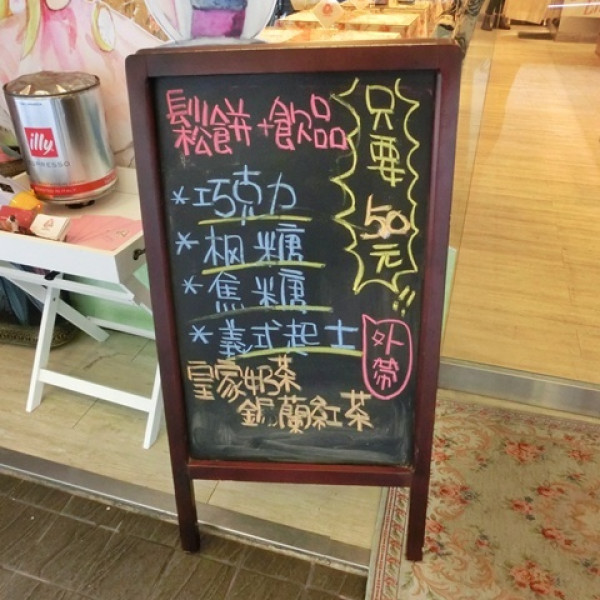 鬆餅+飲品
只要
50
元!!
*巧克力
*楓糖
*焦糖
*義式起士
外帶
皇家奶茶
錫蘭紅茶
illy
ESPRESSO